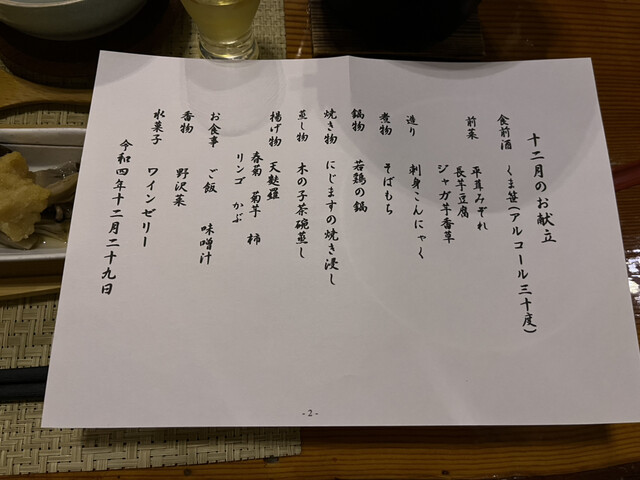 十二月のお献立
食前酒 くま笹(アルコール三十度)
前菜 平茸みぞれ
長芋豆腐
ジャガ芋香草
造り 刺身こんにゃく
煮物 そばもち
鍋物 若鶏の鍋
焼き物 にじますの焼き浸し
蒸し物 木の子茶碗蒸し
揚げ物 天麩羅
春菊 菊芋 柿
リンゴ かぶ
お食事 ご飯 味噌汁
香物 野沢菜
水菓子 ワインゼリー
令和四年十二月二十九日
- 2 -